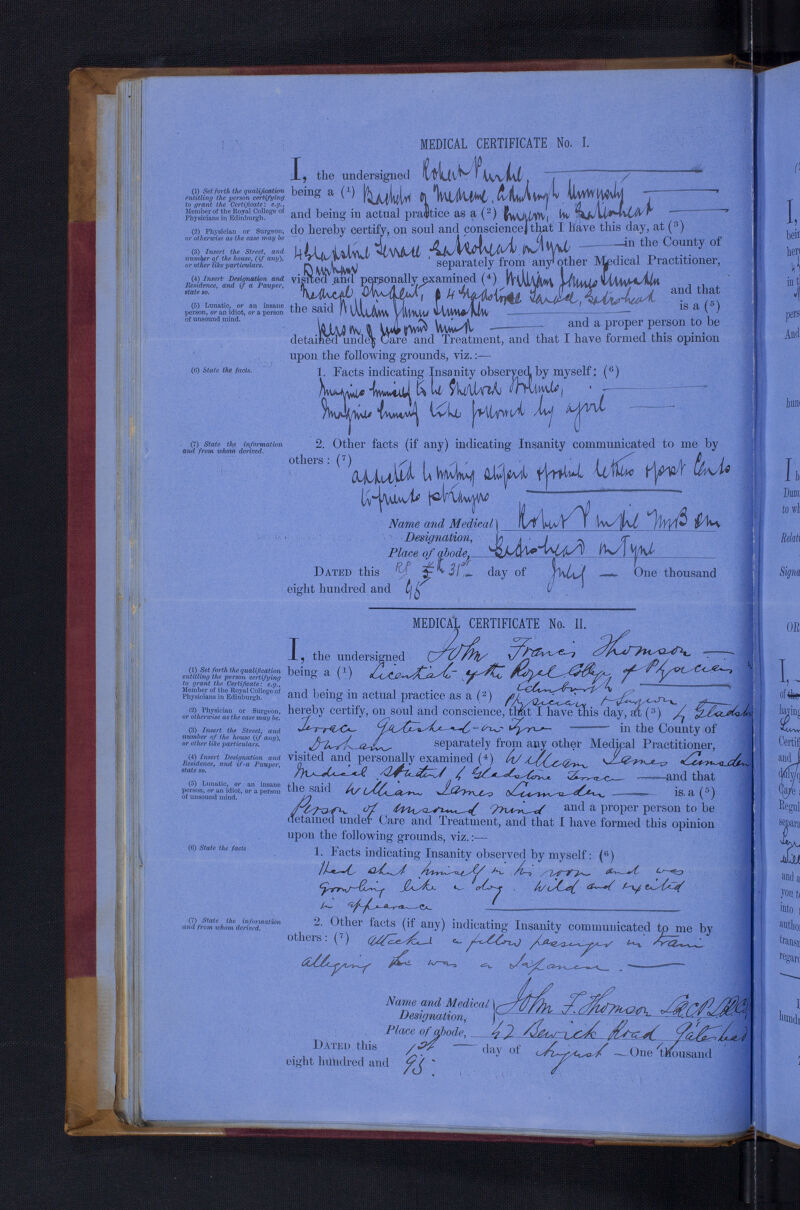 MEDICAL CERTIFICATE No. I.
I, the undersigned Robert Purdie,
(1) Set forth the qualification entitling the person certifying to grant the Certificate; e.g., Member of the Royal College of Physicians in Edinburgh.
being a (1) Bachelor of Medicine, Edinburgh University
and being in actual practice as a (2) Surgeon, in Gateshead
(2) Physician or Surgeon, or otherwise as the case may be
do hereby certify, on soul and conscience, that I have this day, at (3)
(3) Insert the Street, and number of the house, (if any), or other like particulars.
4 Gladstone Terrace, Gateshead on Tyne in the County of
Durham separately from any other Medical Practitioner,
(4) Insert Designation and Residence, and if a Pauper, state so.
visited and personally examined (4) William James Lumsden
Medical Student, 4 Gladstone Terrace, Gateshead and that
(5) Lunatic, or an insane person, or an idiot, or a person of unsound mind.
the said William James Lumsden is a (5)
Person of unsound mind and a proper person to be
detained under Care and Treatment, and that I have formed this opinion
upon the following grounds, viz.:—
(6) State the facts.
1. Facts indicating Insanity observed by myself: (6)
Imagines himself to be Sherlock Holmes,
Imagines himself to be followed by a
(7) State the information and from whom derived.
2. Other facts (if any) indicating Insanity communicated to me by
others: (7)
addicted to writing stupid letters & post Cards
to friends & strangers
Name and Medical Designation, Robert Purdie MB
Place of abode, Gateshead on Tyne
DATED this 31st day of July — One thousand
eight hundred and 95
MEDICAL CERTIFICATE No. II.
I, the undersigned John Francis Thomson —
(1) Set forth the qualification entitling the person certifying to grant the Certificate: e.g., Member of the Royal College of Physicians in Edinburgh.
being a (1) Licentiate of the Royal College of Physicians
Edinburgh
and being in actual practice as a (2) Physician & Surgeon, I
(2) Physician or Surgeon, or otherwise as the case may be.
hereby certify, on soul and conscience, that I have this day, at (3) 4 Gladstone
(3) Insert the Street, and number of the house (if any), or other like particulars.
Terrace Gateshead-on-Tyne — in the County of
Durham separately from any other Medical Practitioner,
(4) Insert Designation and Residence, and if a Pauper, state so.
visited and personally examined (4) William James Lumsden
Medical Student 4 Gladstone Terrace — and that
(5) Lunatic, or an insane person, or an idiot, or a person of unsound mind.
the said William James Lumsden — is a (5)
Person of unsound mind and a proper person to be
detained under Care and Treatment, and that I have formed this opinion
upon the following grounds, viz.:—
(6) State the facts
1. Facts indicating Insanity observed by myself: (6)
Had shut himself in his room and was
growling like a dog. Wild and excited
in appearance
(7) State the information and from whom derived.
2. Other facts (if any) indicating Insanity communicated to me by
others: (7) Attacked a fellow passenger in train
alleging he was a Japanese. —
Name and Medical Designation, John F. Thomson
Place of abode, 42 Bewick Road Gateshead
DATED this 1st — day of August — One thousand
eight hundred and 95.